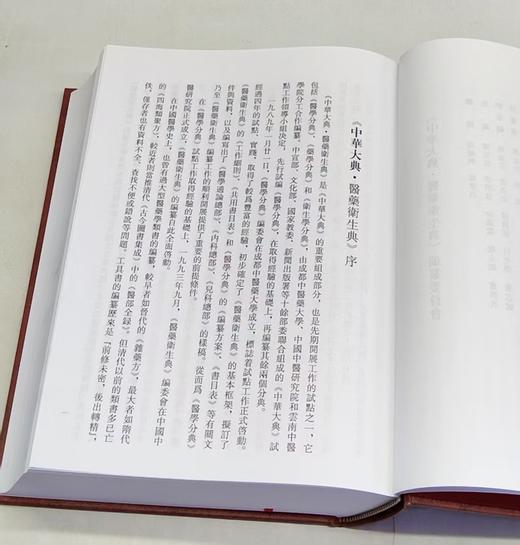 《中華大典·醫藥衛生典》序
《中華大典·醫藥衛生典》是《中華大典》的重要組成部分，也是先期開展工作的試點之一，它
包括《醫學分典》、《藥學分典》和《衛生學分典》，由成都中醫藥大學、中國中醫研究院和雲南中醫
學院分工合作編纂。中宣部、文化部、國家教委、新聞出版署等十餘部委聯合組成的《中華大典》試
點工作領導小組決定，先行試編《醫學分典》，在取得經驗的基礎上，再編纂其餘兩個分典。
一九八九年一月廿一日，《醫學分典》編委會在成都中醫藥大學成立，標誌着試點工作正式啓動。
經過四年的試點、實踐，取得了較爲豐富的經驗，初步確定了《醫藥衛生典》的基本框架，擬訂了
《醫藥衛生典》的《工作細則》、《共用書目表》和《醫學分典》的《編纂方案》、《書目表》等有關文
件與資料，以及編寫出了《醫學通論總部》、《内科總部》、《兒科總部》的樣稿。從而爲《醫學分典》
乃至《醫藥衛生典》編纂工作的順利開展提供了重要的前提條件。
在《醫學分典》試點工作取得經驗的基礎上，一九九三年九月，《醫藥衛生典》編委會在中國中
醫研究院正式成立，《醫藥衛生典》的編纂自此全面啓動。
在中國醫學史上，也曾有過大型醫藥學類書的編纂，較早者如晉代的《
藥方》，最大者如隋代
的《四海類聚方》，較近者則當推清代《古今圖書集成》中的《醫部全録》。但清代以前的類書多已亡
佚，僅存者也有資料不全、查找不便或錯訛等問題。工具書的編纂歷來是「前修未密，後出轉精」，